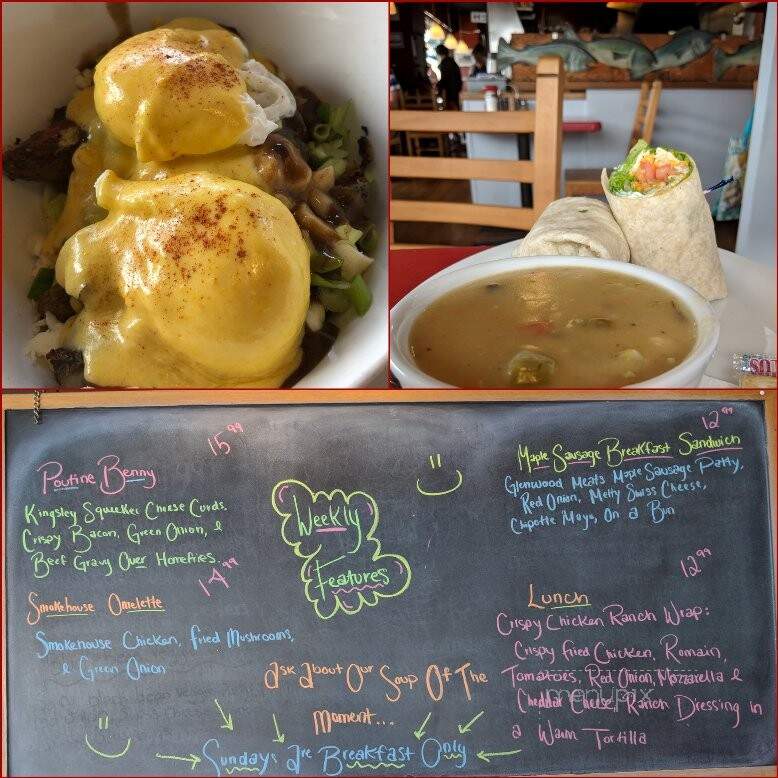 15.99
Poutine Benny
Kingsley Squeeker Cheese Curds,
Crispy Bacon, Green Onion, &
Beef Gravy Over Homefries.
14.99
Smokehouse Omelette
Smokehouse Chicken, fried Mushrooms,
& Green Onion
Weekly
Features
12.99
Maple Sausage Breakfast Sandwich
Glenwood Meats Maple Sausage Patty,
Red Onion, Melty Swiss Cheese,
Chipotle Mayo, On a Bun
12.99
Lunch
Crispy Chicken Ranch Wrap:
Crispy fried Chicken, Romain,
Tomatoes, Red Onion, Mozzarella &
Cheddar Cheese, Ranch Dressing in
a Warm Tortilla
ask about Our Soup Of The
Moment...
Sundays are Breakfast Only
menupix